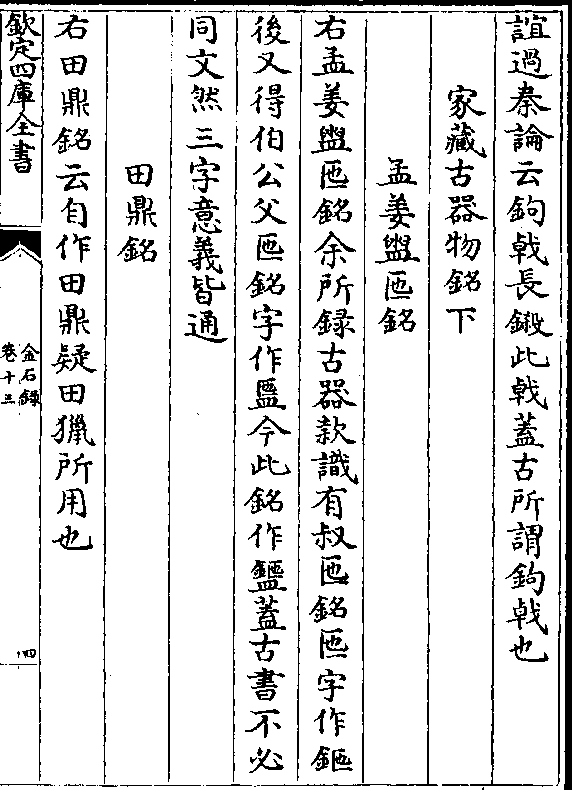 誼過秦論云鉤㦸長鎩此㦸蓋古所謂鉤㦸也
家藏古器物銘下
孟姜盥匜銘
右孟姜盥匜銘余所録古器款識有叔匜銘匜字作鉇
後又得伯公父匜銘字作𥁓今此銘作䥯蓋古書不必
同文然三字意義皆通
田鼎銘
右田鼎銘云自作田鼎疑田獵所用也
欽定四庫全書
金石録
卷十三
四